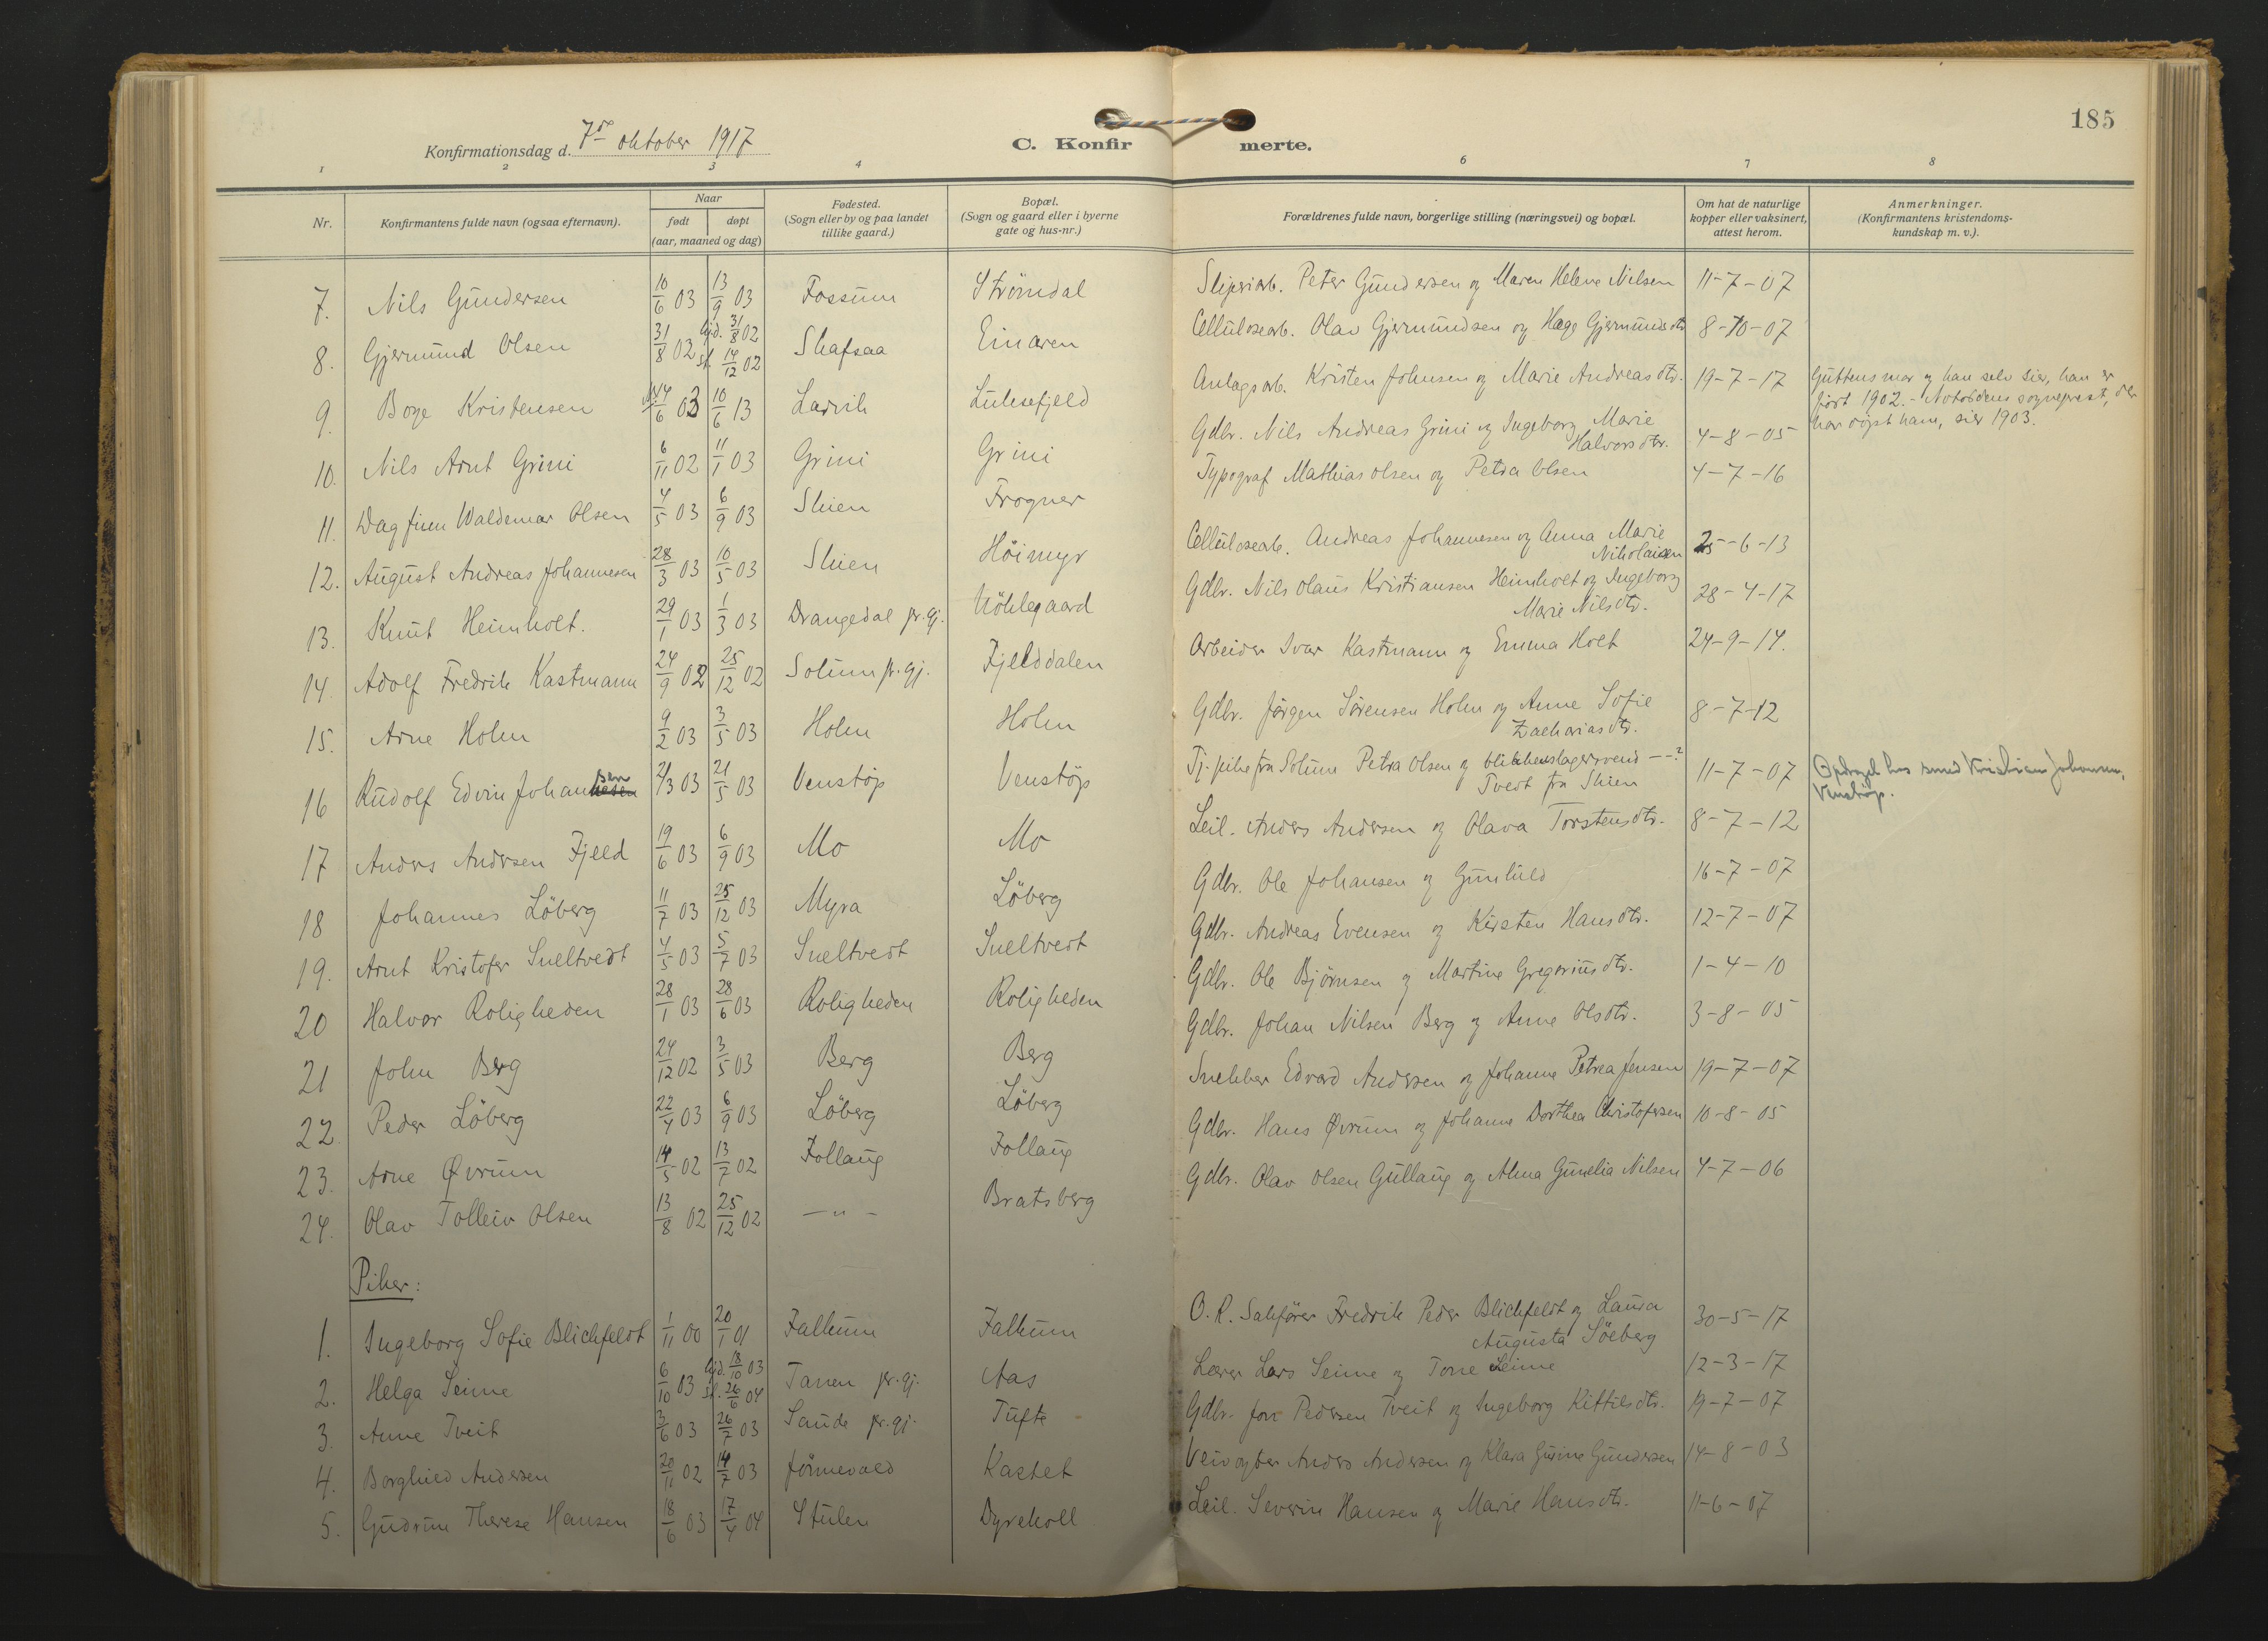 185
Konfirmationsdag d. 7de oktober 1917
C. Konfir merte.
1 2 3 4 6 7 8
Nr. Konfirmantens fulde navn (ogsaa efternavn). Naar født døpt (aar, maaned og dag) Fødested. (Sogn eller by og paa landet tillike gaard.) Bopæl. (Sogn og gaard eller i byerne gate og hus-nr.) Forældrenes fulde navn, borgerlige stilling (næringsvei) og bopæl. Om hat de naturlige kopper eller vaksinert, attest herom. Anmerkninger. (Konfirmantens kristendoms-kundskap m. v.).
7. Nils Gundersen 10/6 03 13/9 03 Fossum Strömdal Sliperiarb. Peter Gundersen og Maren Helene Nilsen 11-7-07
8. Gjermund Olsen 31/8 02 hjd. 31/8 02 st. 14/12 02 Skafsaa Einaren Cellulosearb. Olav Gjermundsen og Hæge Gjermundsdtr 8-10-07
9. Boye Kristensen 14/6 03 10/6 13 Larvik Luksefjeld Anlagsarb. Kristen Johnsen og Marie Andreasdtr. 19-7-17 Guttens mor og han selv sier, han er
født 1902. - Notoddens sogneprest, der
har døpt ham, sier 1903.
10. Nils Arnt Grini 6/11 02 11/1 03 Grini Grini Gdbr. Nils Andreas Grini og Ingeborg Marie
Halvorsdtr. 4-8-05
11. Dagfinn Waldemar Olsen 4/5 03 6/9 03 Skien Frogner Typograf Mathias Olsen og Petra Olsen 4-7-16
12. August Andreas Johannesen 28/3 03 10/5 03 Skien Höimyr Cellulosearb. Andreas Johannesen og Anna Marie
Nikolaisen 25-6-13
13. Knut Heimholt. 29/1 03 1/3 03 Drangedal pr.gj. Köhlegaard Gdbr. Nils Olaus Kristiansen Heimholt og Ingeborg
Marie Nilsdtr. 28-4-17
14. Adolf Fredrik Kastmann 24/9 02 25/12 02 Solum pr.gj. Fjelddalen Arbeider Ivar Kastmann og Emma Holt 24-9-14.
15. Arne Holm 9/2 03 3/5 03 Holm Holm Gdbr. Jörgen Sörensen Holm og Anne Sofie
Zachariasdtr. 8-7-12
16 Rudolf Edvin Johansen 21/3 03 21/5 03 Venstöp Venstöp Tj. pike fra Solum Petra Olsen og blikkenslagersvend --?
Tvedt fra Skien 11-7-07 Opdraget hos smed Kristian Johansen,
Venstöp.
17 Anders Andersen Fjeld 19/6 03 6/9 03 Mo Mo Leil. Anders Andersen og Olava Torstensdtr. 8-7-12
18 Johannes Löberg 11/7 03 25/12 03 Myra Löberg Gdbr. Ole Johansen og Gunhild 16-7-07
19. Arnt Kristofer Sneltvedt 4/5 03 5/7 03 Sneltvedt Sneltvedt Gdbr. Andreas Evensen og Kirsten Hansdtr. 12-7-07
20 Halvor Roligheden 28/1 03 28/6 03 Roligheden Roligheden Gdbr. Ole Björnsen og Martine Gregoriusdtr. 1-4-10
21 John Berg 24/12 02 3/5 03 Berg Berg Gdbr. Johan Nilsen Berg og Anne Olsdtr. 3-8-05
22. Peder Löberg 22/4 03 6/9 03 Löberg Löberg Snekker Edvard Andersen og Johanne Petrea Jensen 19-7-07
23. Arne Øvrum 14/5 02 13/7 02 Follaug Follaug Gdbr. Hans Øvrum og Johanne Dorthea Christofersen 10-8-05
24. Olav Tolleiv Olsen 13/8 02 25/12 02 -"- Bratsberg Gdbr. Olav Olsen Gullaug og Alma Gunelia Nilsen 4-7-06
Piker:
1. Ingeborg Sofie Blichfeldt 1/11 00 20/1 01 Falkum Falkum O.R. Sakförer Fredrik Peder Blichfeldt og Laura
Augusta Söeberg 30-5-17
2. Helga Seime 6/10 03 hjd. 18/10 03 st. 26/6 04 Tanem pr.gj. Aas Lærer Lars Seime og Tone Seime 12-3-17
3. Anne Tveit 3/6 03 26/7 03 Saude pr.gj. Tufte Gdbr. Jon Pedersen Tveit og Ingeborg Kittilsdtr. 19-7-07
4. Borghild Andersen 20/11 02 14/7 03 Jönnevald Kastet Veivogter Anders Andersen og Klara Gurine Gundersen 14-8-03
5. Gudrun Therese Hansen 18/6 03 17/4 04 Stulen Dyrekoll Leil. Severin Hansen og Marie Hansdtr. 11-6-07